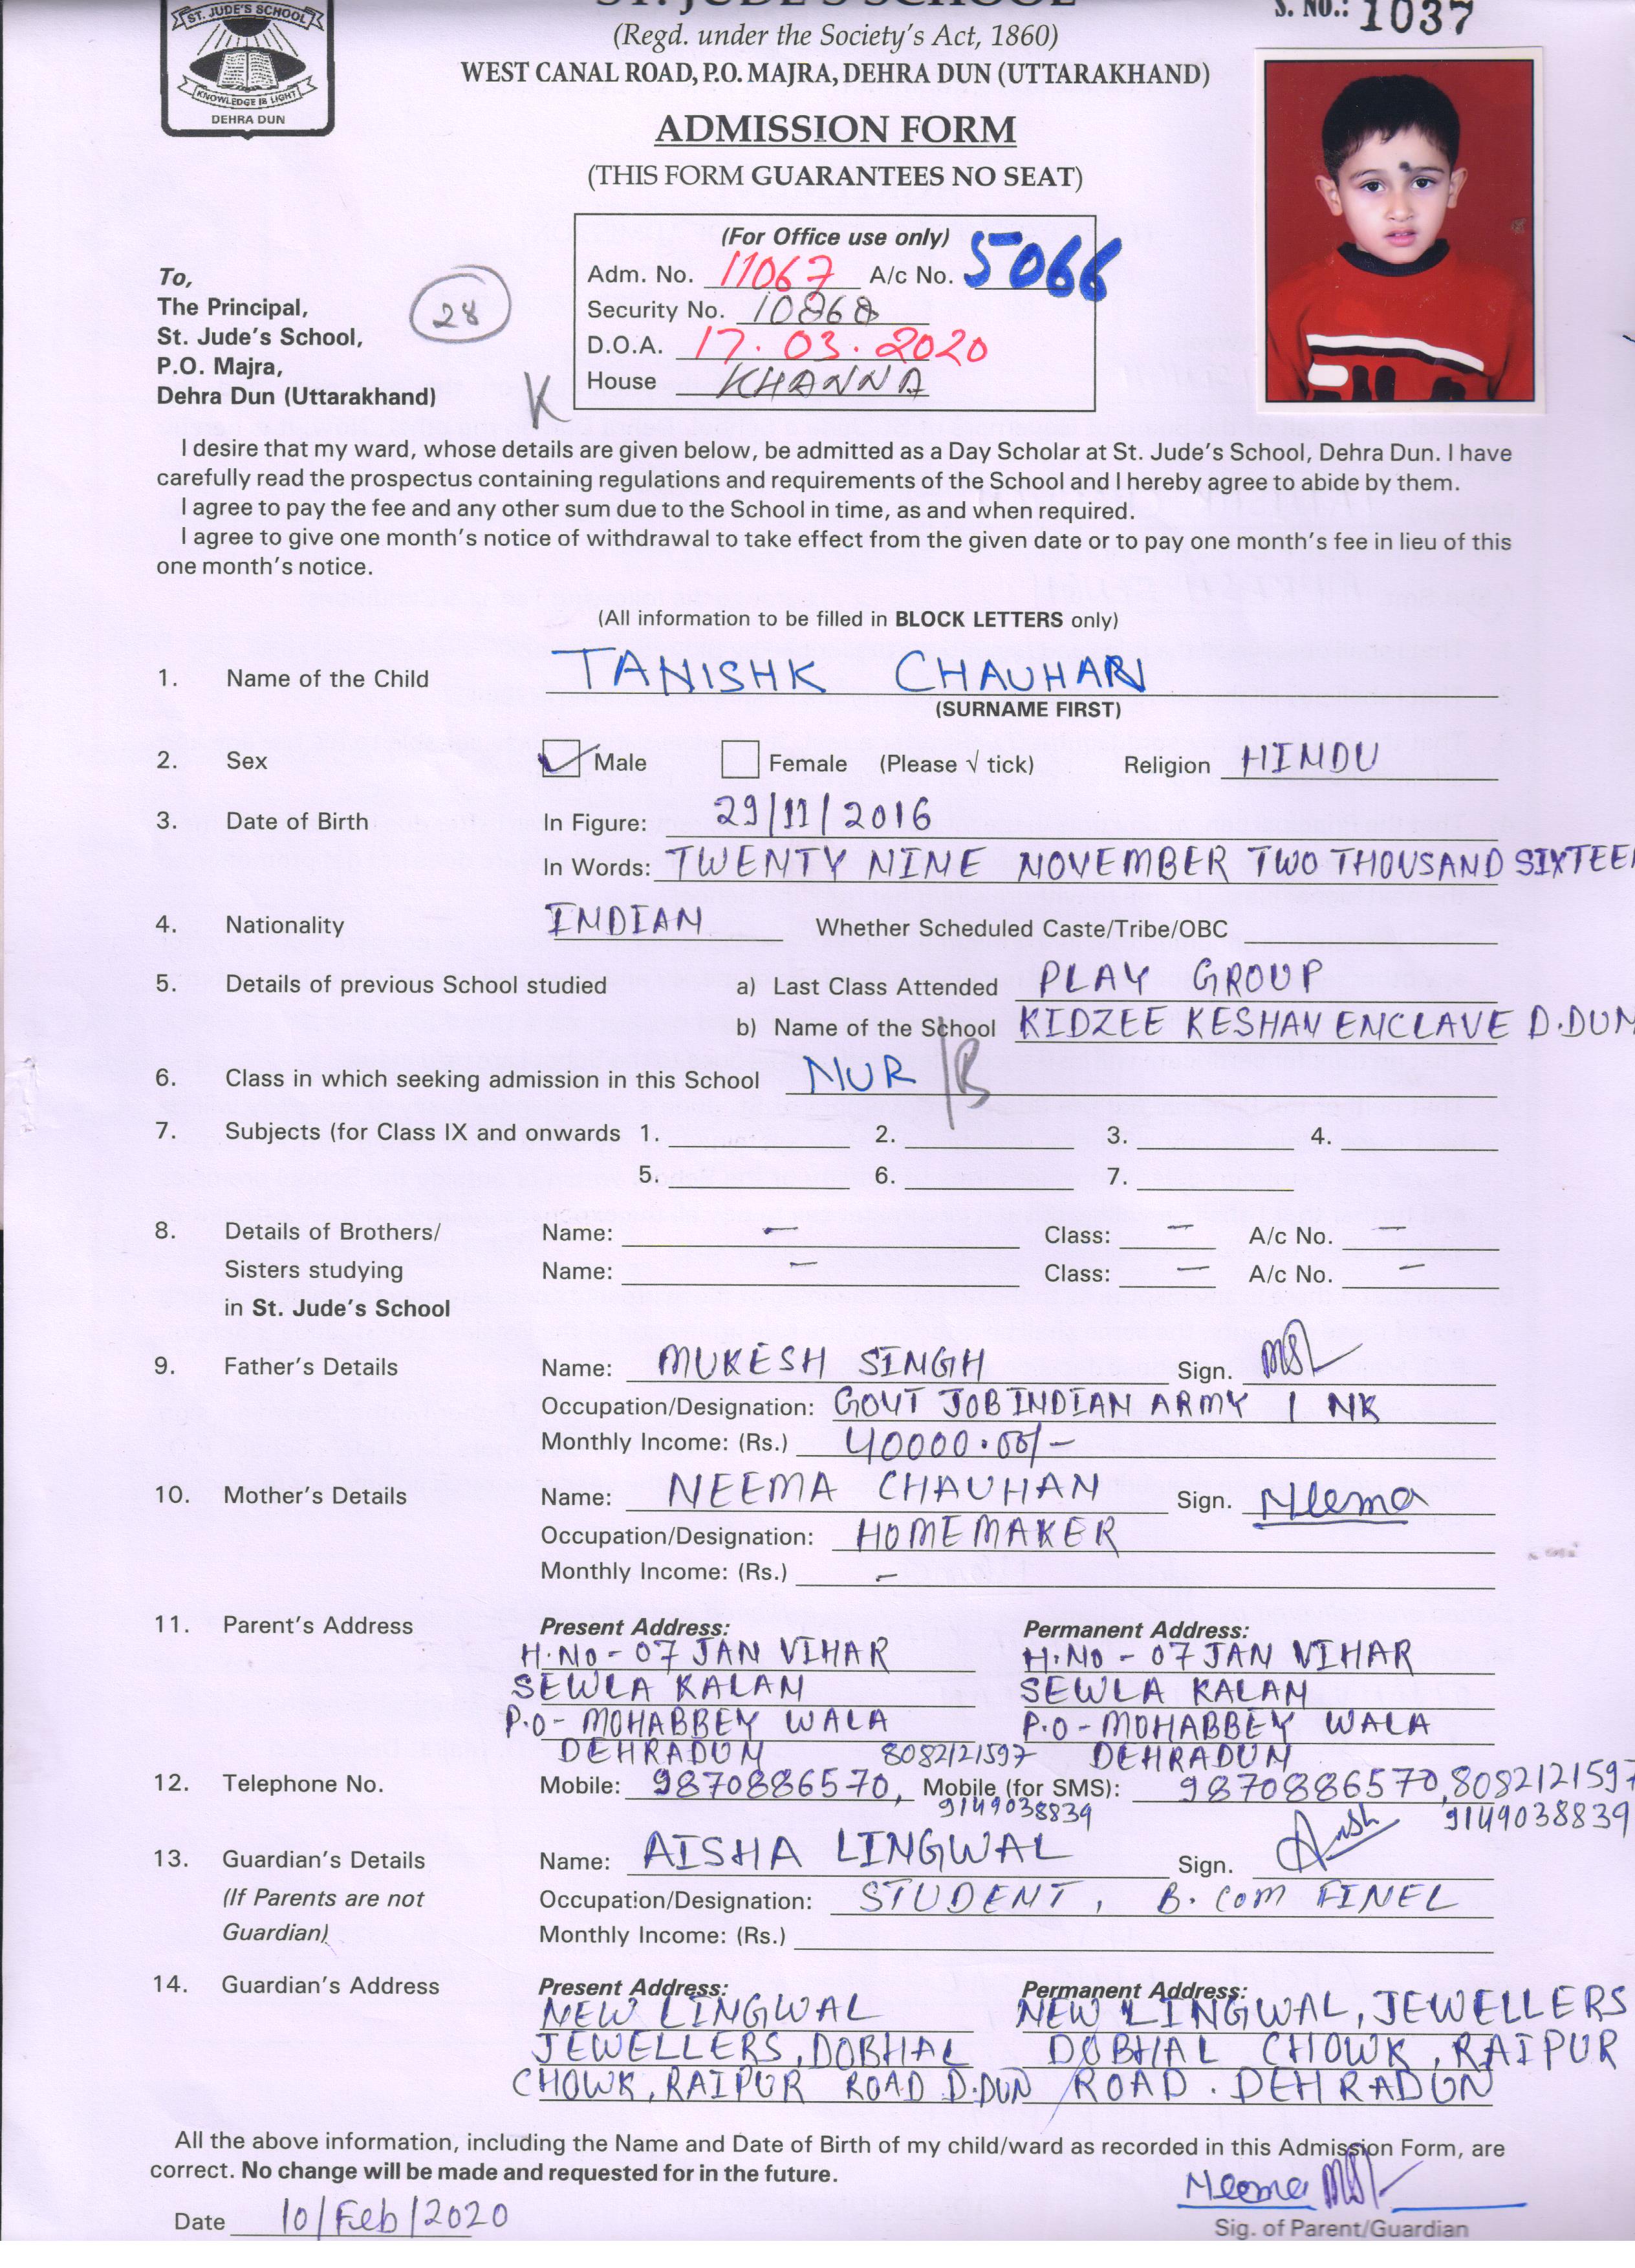 ST. JUDE'S SCHOOL
S. NO.: 1037
ST. JUDE'S SCHOOL
KNOWLEDGE IS LIGHT
DEHRA DUN
(Regd. under the Society's Act, 1860)
WEST CANAL ROAD, P.O. MAJRA, DEHRA DUN (UTTARAKHAND)
ADMISSION FORM
(THIS FORM GUARANTEES NO SEAT)
(For Office use only)
Adm. No. 11067 A/c No. 5066
Security No. 10868
D.O.A. 17.03.2020
House KHANNA
To,
The Principal,
St. Jude's School,
P.O. Majra,
Dehra Dun (Uttarakhand)
28
K
I desire that my ward, whose details are given below, be admitted as a Day Scholar at St. Jude's School, Dehra Dun. I have
carefully read the prospectus containing regulations and requirements of the School and I hereby agree to abide by them.
I agree to pay the fee and any other sum due to the School in time, as and when required.
I agree to give one month's notice of withdrawal to take effect from the given date or to pay one month's fee in lieu of this
one month's notice.
(All information to be filled in BLOCK LETTERS only)
1. Name of the Child TANISHK CHAUHAN
(SURNAME FIRST)
2. Sex Male Female (Please √ tick) Religion HINDU
3. Date of Birth In Figure: 29/11/2016
In Words: TWENTY NINE NOVEMBER TWO THOUSAND SIXTEEN
4. Nationality INDIAN Whether Scheduled Caste/Tribe/OBC
5. Details of previous School studied a) Last Class Attended PLAY GROUP
b) Name of the School KIDZEE KESHAV ENCLAVE D.DUN
6. Class in which seeking admission in this School NUR /B
7. Subjects (for Class IX and onwards 1. 2. 3. 4.
5. 6. 7.
8. Details of Brothers/ Name: – Class: – A/c No. –
Sisters studying Name: – Class: – A/c No. –
in St. Jude's School
9. Father's Details Name: MUKESH SINGH Sign.
Occupation/Designation: GOVT JOB INDIAN ARMY / NK
Monthly Income: (Rs.) 40000.00/-
10. Mother's Details Name: NEEMA CHAUHAN Sign. Neema
Occupation/Designation: HOMEMAKER
Monthly Income: (Rs.) –
11. Parent's Address Present Address: Permanent Address:
H.NO - 07 JAN VIHAR H.NO - 07 JAN VIHAR
SEWLA KALAN SEWLA KALAN
P.O - MOHABBEY WALA P.O - MOHABBEY WALA
DEHRADUN 8082121597 DEHRADUN
12. Telephone No. Mobile: 9870886570, Mobile (for SMS): 9870886570, 8082121597
9149038839 9149038839
13. Guardian's Details Name: AISHA LINGWAL Sign.
(If Parents are not Occupation/Designation: STUDENT, B.COM FINEL
Guardian) Monthly Income: (Rs.)
14. Guardian's Address Present Address: Permanent Address:
NEW LINGWAL NEW LINGWAL, JEWELLERS
JEWELLERS, DOBHAL DOBHAL CHOWK, RAIPUR
CHOWK, RAIPUR ROAD D.DUN ROAD. DEHRADUN
All the above information, including the Name and Date of Birth of my child/ward as recorded in this Admission Form, are
correct. No change will be made and requested for in the future.
Neema
Date 10/Feb/2020
Sig. of Parent/Guardian